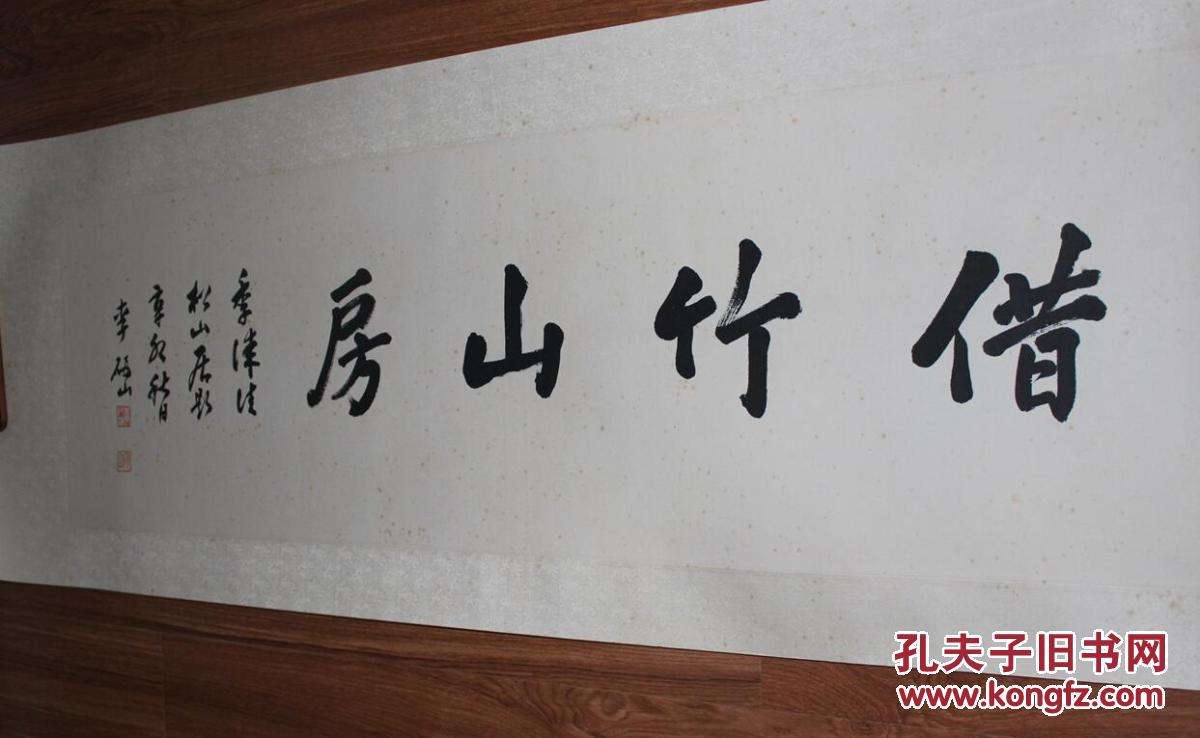 借竹山房
季津法
松山居影
辛卯秋日
李研山
孔夫子旧书网
www.kongfz.com